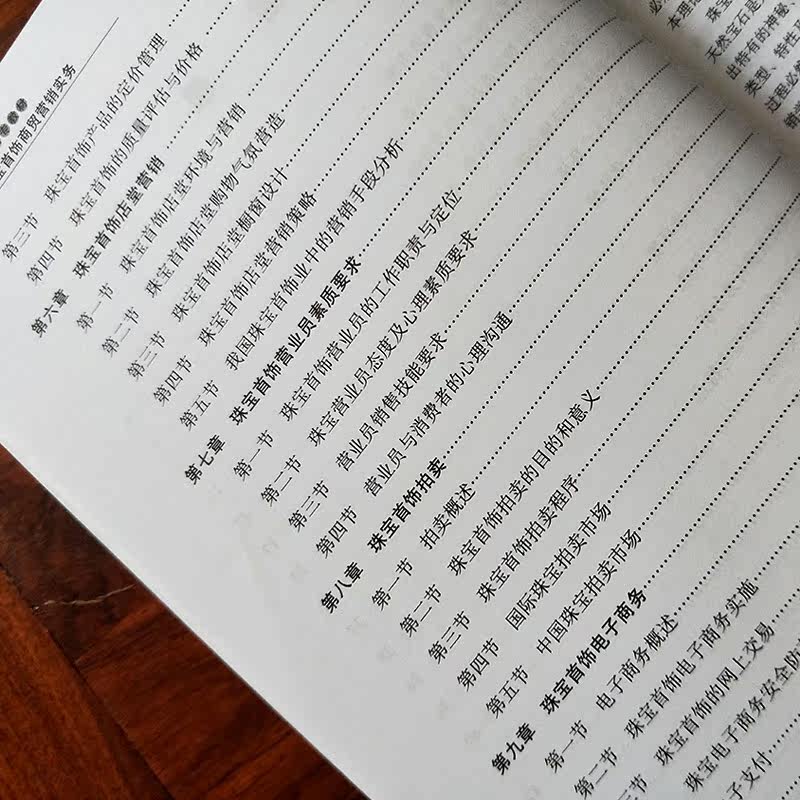 宝首饰商贸营销实务
第三节 珠宝首饰产品的定价管理
第四节 珠宝首饰的质量评估与价格
第六章 珠宝首饰店堂营销
第一节 珠宝首饰店堂环境与营销
第二节 珠宝首饰店堂购物气氛营造
第三节 珠宝首饰店堂橱窗设计
第四节 珠宝首饰店堂营销策略
第五节 我国珠宝首饰业中的营销手段分析
第七章 珠宝首饰营业员素质要求
第一节 珠宝首饰营业员的工作职责与定位
第二节 珠宝营业员态度及心理素质要求
第三节 营业员销售技能要求
第四节 营业员与消费者的心理沟通
第八章 珠宝首饰拍卖
第一节 拍卖概述
第二节 珠宝首饰拍卖的目的和意义
第三节 珠宝首饰拍卖程序
第四节 国际珠宝拍卖市场
第五节 中国珠宝拍卖市场
第九章 珠宝首饰电子商务
第一节 电子商务概述
第二节 珠宝首饰电子商务实施
节 珠宝首饰的网上交易
珠宝电子商务安全防
子支付
本理
珠宝
天然宝石是
出特有的神秘
类型、特性
过程必